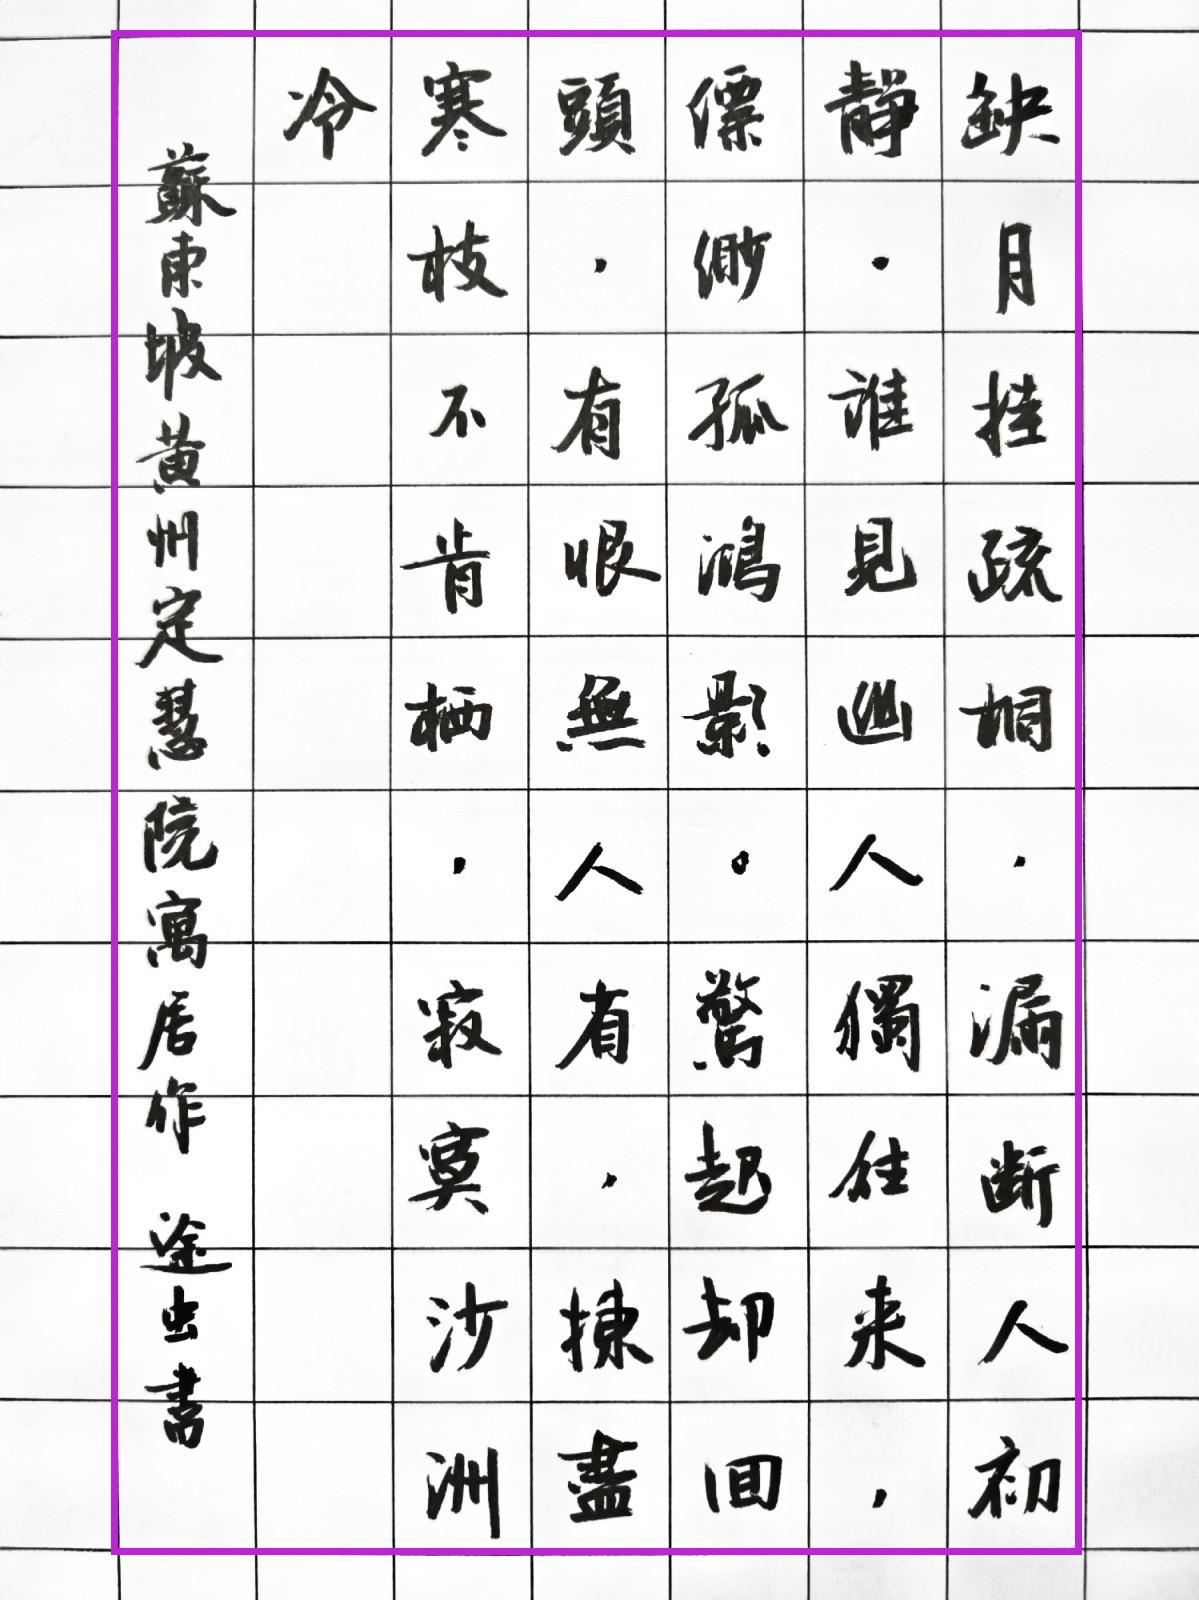 缺月挂疏桐，漏断人初
靜。誰見幽人獨往来，
僄僩孤鴻影。驚起却回
頭，有眼無人省，揀盡
寒枝不肯栖，寂寞沙洲
冷
蘇東坡黄州定慧院寓居作 途虫書